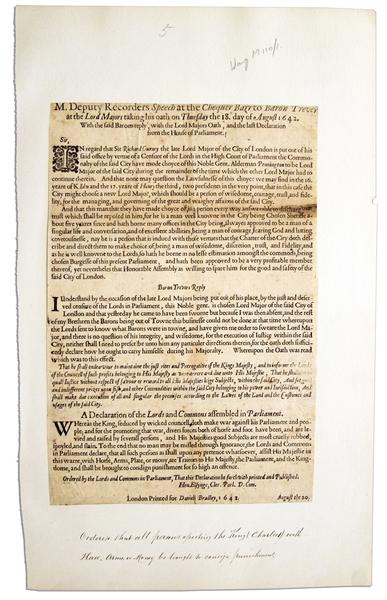 5
M. Deputy Recorders Speech at the Chequer Barr to Baron Trevor
at the Lord Majors taking his oath on Thursday the 18. day of August 1642.
With the said Barons reply, with the Lord Majors Oath, and the last Declaration
from the House of Parliament.
Sir,
IN regard that Sir Richard Gurney the late Lord Major of the City of London is put out of his
said office by vertue of a Censure of the Lords in the High Court of Parliament the Commo-
nalty of the said City have made choyce of this Noble Gent. Alderman Pennington to be Lord
Major of the said City during the remainder of the time which the other Lord Major had to
continue therein. And that none may question the Lawfulnesse of this choyce we may find in the 16.
yeare of K. John and the 17. yeare of Henry the third, two presidents in the very point, that in this case the
City might choose a new Lord Major, which should be a person of wisedome, courage, trust, and fide-
lity, for the managing, and governing of the great and waighty affaires of the said City.
And that this man that they have made choyce of is a person every way answerable to
trust which shall be reposed in him, for he is a man well knowne in the City being Chosen Sheriffe a-
bout five yeares since and hath borne many offices in the City being alwayes approved to be a man of
singular life and conversation, and of excellent abilities, being a man of courage fearing God and hating
covetousnesse, nay he is a person that is indued with those vertues that the Charter of the City doth des-
cribe and direct them to make choice of, being a man of wisedome, discretion, trust, and Fidelity, and
as he is well knowne to the Lords, so hath he beene in no lesse estimation amongst the commons, being
chosen Burgesse of this present Parliament, and hath been approved to be a very profitable member
thereof, yet neverthelesse that Honorable Assembly as willing to spare him for the good and safety of the
said City of London.
Baron Trevors Reply
I Understand by the occasion of the late Lord Majors being put out of his place, by the just and deser-
ved censure of the Lords in Parliament, this Noble Gent. is chosen Lord Major of the said City of
London and that yesterday he came to have been sworne but because I was then absent, and the rest
of my Brethren the Barons being out of Towne this businesse could not be done at that time whereupon
the Lords sent to know what Barons were in towne, and have given me order to sweare the Lord Ma-
jor, and there is no question of his integrity, and wisedome, for the execution of Justice within the said
City, neither shall I need to prescribe unto him any particular directions therein, for the oath doth suffici-
ently declare how he ought to carry himselfe during his Majoralty. Whereupon the Oath was read
which was to this effect.
That he shall endeavour to maintaine the just rites and Prerogative of the Kings Majesty, and to informe the Lords
of the Councell of such profits belonging to His Majesty as are and due unto His Majestie, That he shall
equall Justice without respect of favour or reward to all His Majesties leige Subjects, within the said City, And set
and indifferent prizes upon fish, and other Commodities within the said City belonging to his power and Jurisdiction, And
shall make due execution of all and singular the premises according to the Lawes of the Land and the Customes and
usages of the said City.
A Declaration of the Lords and Commons assembled in Parliament.
WHereas the King, seduced by wicked councell, doth make war against his Parliament and peo-
ple, and for the promoting that war, divers forces both of horse and foot have been, and are le-
vied and raised by severall persons, and His Majesties good Subjects are most cruelly robbed,
spoyled, and slain. To the end that no man may be missed through Ignorance, the Lords and Commons
in Parliament declare, that all such persons as shall upon any pretence whatsoever, assist His Majestie in
this warre, with Horse, Arms, Plate, or mony, are Traitors to His Majesty, the Parliament, and the King-
dome, and shall be brought to condigne punishment for so high an offence.
Ordered by the Lords and Commons in Parliament, That this Declaration be forthwith printed and Published.
Hen. Elsynge, Cler. Parl. D. Com.
London Printed for Daniell Bradley, 1642. August the 20.
Ordered that all persons assisting the King (Charles I) with
Horse, Arms or Money be brought to condign punishment